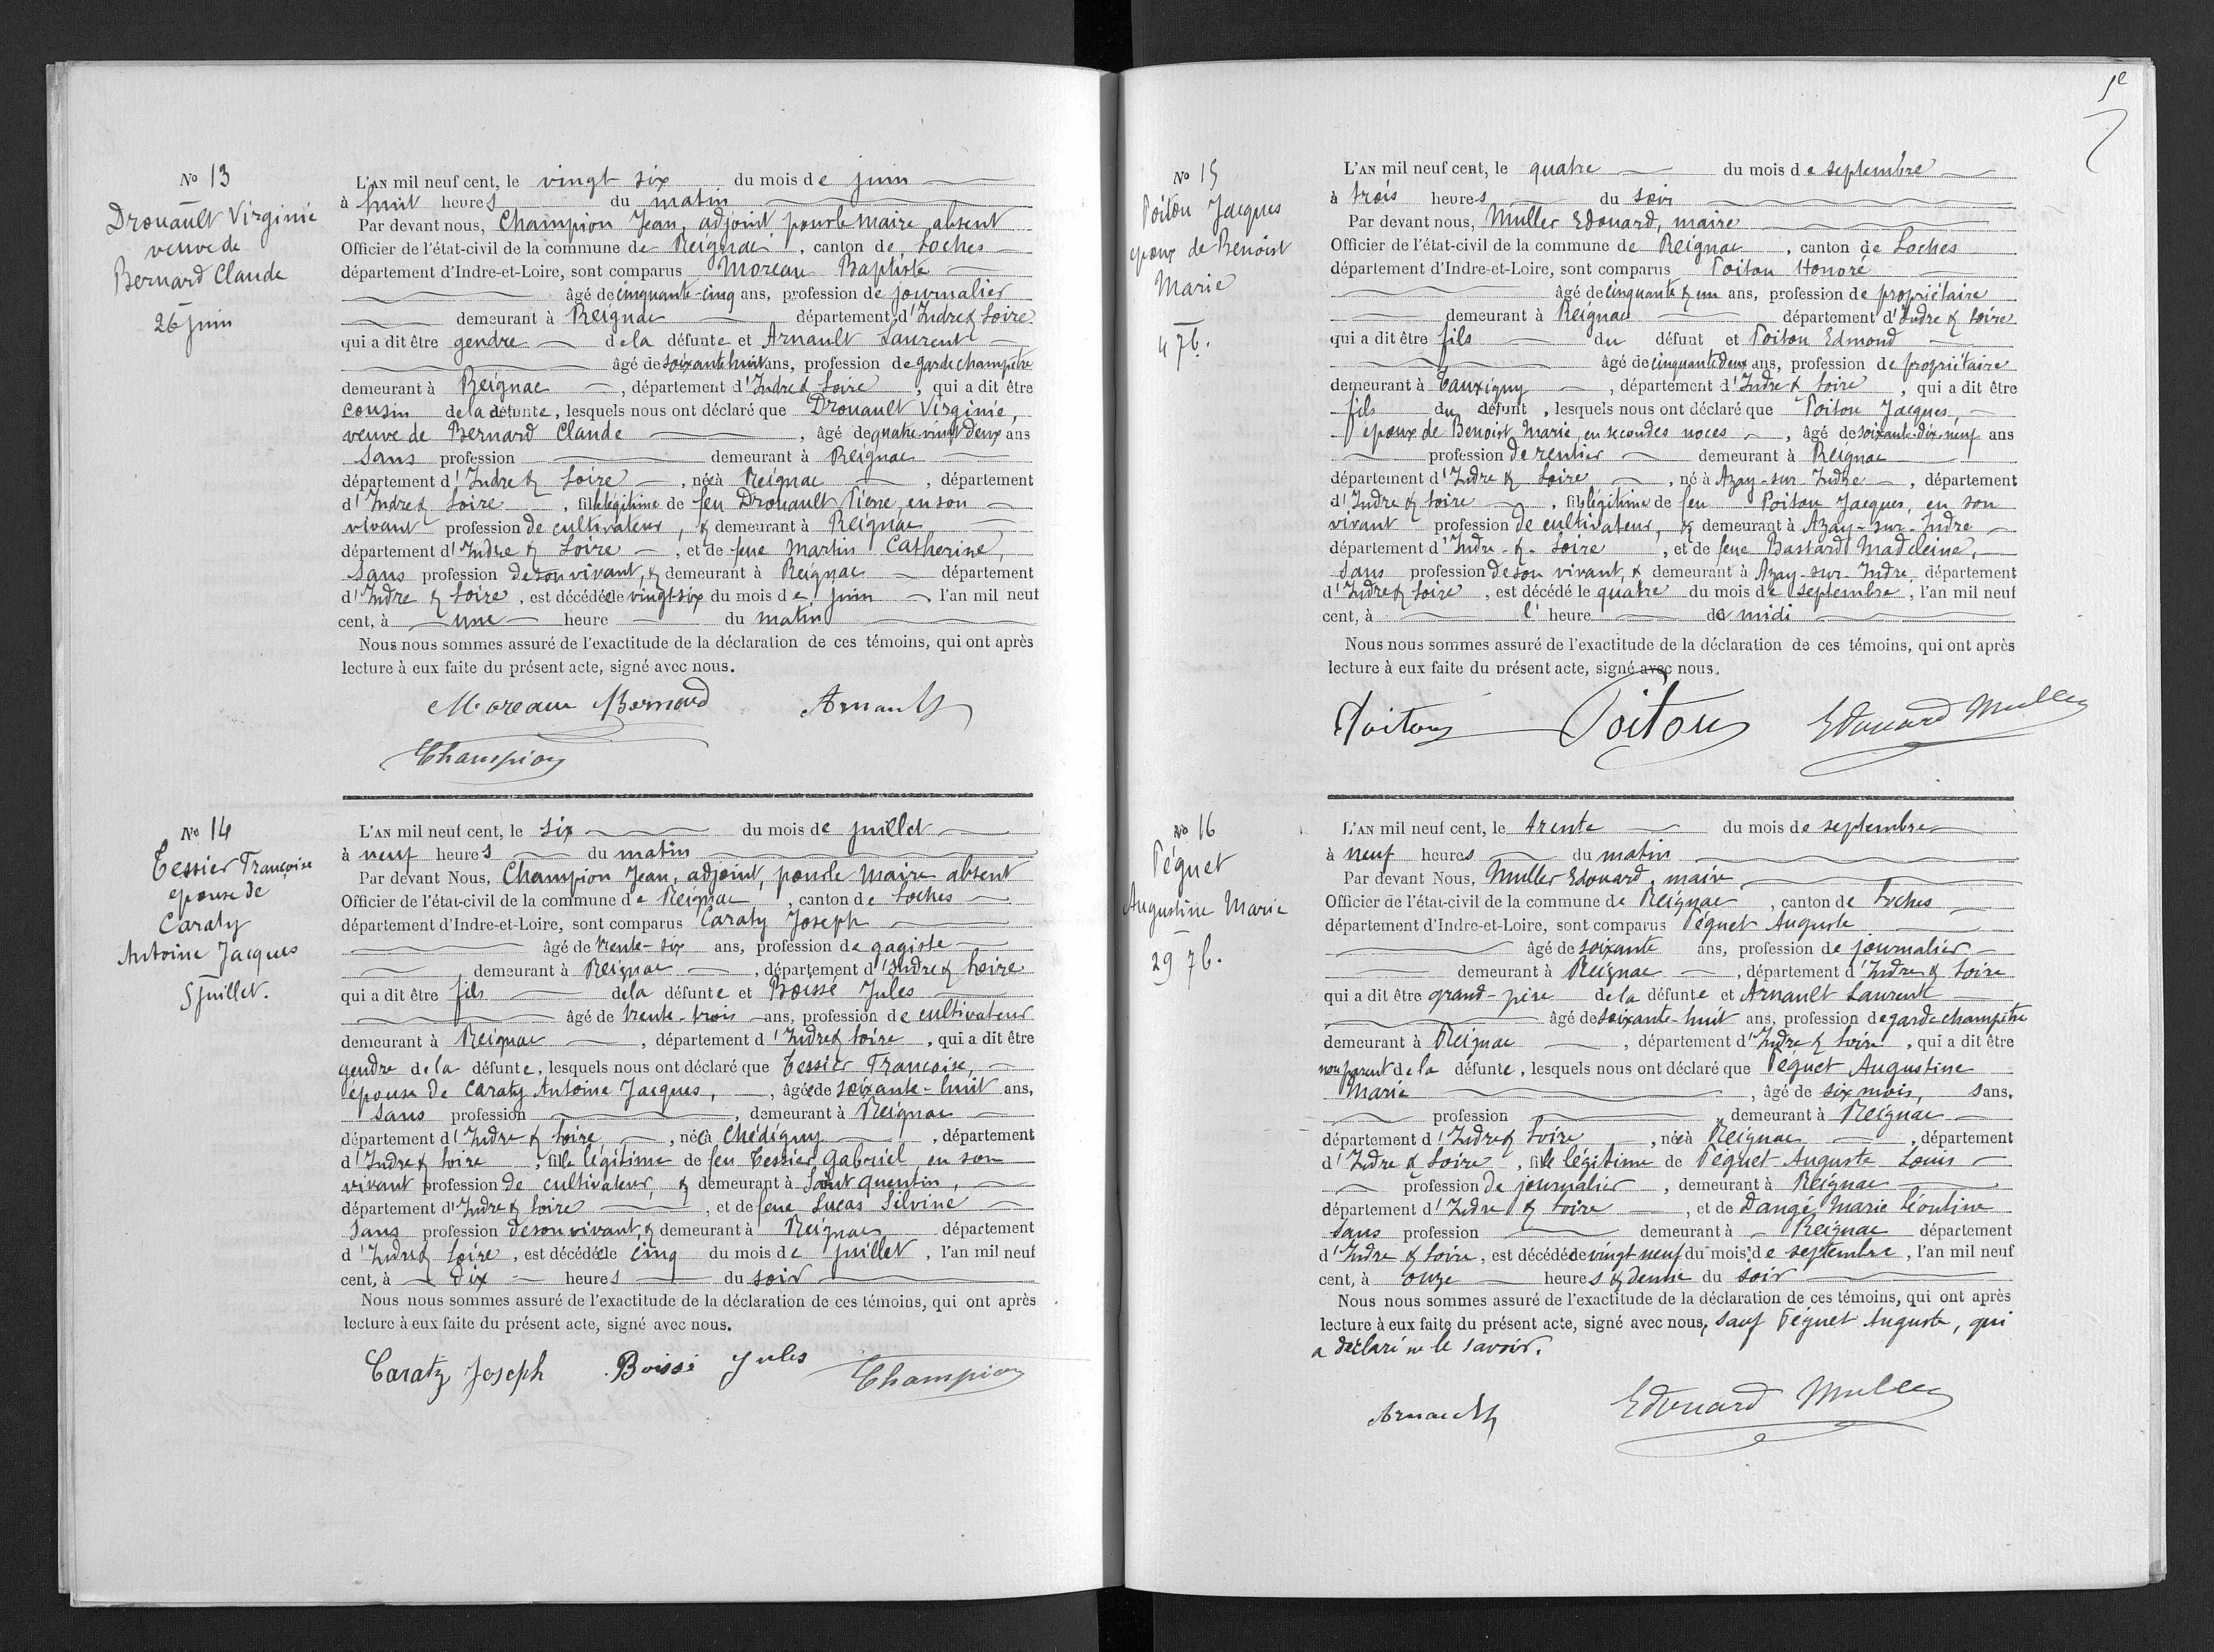 No 13
Drouault Virginie
veuve de
Bernard Claude
26 juin
L'AN mil neuf cent, le vingt six du mois de juin
à huit heures du matin
Par devant nous, Champion Jean, adjoint pour le maire absent
Officier de l'état-civil de la commune de Reignac, canton de Loches
département d'Indre-et-Loire, sont comparus Moreau Baptiste
âgé de cinquante-cinq ans, profession de journalier
demeurant à Reignac département d'Indre & Loire
qui a dit être gendre de la défunte et Arnault Laurent
âgé de soixante huit ans, profession de garde champêtre
demeurant à Reignac, département d'Indre & Loire, qui a dit être
cousin de la défunte, lesquels nous ont déclaré que Drouault Virginie,
veuve de Bernard Claude, âgé de quatre-vingt deux ans
sans profession demeurant à Reignac
département d'Indre & Loire, née à Reignac, département
d'Indre & Loire, fille légitime de feu Drouault Pierre, en son
vivant profession de cultivateur, & demeurant à Reignac
département d'Indre & Loire, et de feue Martin Catherine,
sans profession de son vivant, & demeurant à Reignac département
d'Indre & Loire, est décédée le vingt six du mois de juin, l'an mil neuf
cent, à une heure du matin
Nous nous sommes assuré de l'exactitude de la déclaration de ces témoins, qui ont après
lecture à eux faite du présent acte, signé avec nous.
Moreau Bernard Arnault
Champion
No 14
Tessier Françoise
épouse de
Caraty
Antoine Jacques
5 juillet.
L'AN mil neuf cent, le six du mois de juillet
à neuf heures du matin
Par devant Nous, Champion Jean, adjoint, pour le Maire absent
Officier de l'état-civil de la commune de Reignac, canton de Loches
département d'Indre-et-Loire, sont comparus Caraty Joseph
âgé de trente-six ans, profession de gagiste
demeurant à Reignac, département d'Indre & Loire
qui a dit être fils de la défunte et Boissé Jules
âgé de trente-trois ans, profession de cultivateur
demeurant à Reignac, département d'Indre & Loire, qui a dit être
gendre de la défunte, lesquels nous ont déclaré que Tessier Françoise,
épouse de Caraty Antoine Jacques, âgée de soixante-huit ans,
sans profession, demeurant à Reignac
département d'Indre & Loire, née à Chédigny, département
d'Indre & Loire, fille légitime de feu Tessier Gabriel en son
vivant profession de cultivateur, & demeurant à Saint Quentin,
département d'Indre & Loire, et de feue Lucas Silvine
sans profession de son vivant, & demeurant à Reignac département
d'Indre & Loire, est décédée le cinq du mois de juillet, l'an mil neuf
cent, à dix heures du soir
Nous nous sommes assuré de l'exactitude de la déclaration de ces témoins, qui ont après
lecture à eux faite du présent acte, signé avec nous.
Caraty Joseph Boissé Jules Champion
5e
No 15
Poitou Jacques
époux de Benoist
Marie
4 7b.
L'AN mil neuf cent, le quatre du mois de septembre
à trois heures du soir
Par devant nous, Muller Edouard, maire
Officier de l'état-civil de la commune de Reignac, canton de Loches
département d'Indre-et-Loire, sont comparus Poitou Honoré
âgé de cinquante & un ans, profession de propriétaire
demeurant à Reignac département d'Indre & Loire
qui a dit être fils du défunt et Poitou Edmond
âgé de cinquante deux ans, profession de propriétaire
demeurant à Tauxigny, département d'Indre & Loire, qui a dit être
fils du défunt, lesquels nous ont déclaré que Poitou Jacques,
époux de Benoist Marie, en secondes noces, âgé de soixante-dix-neuf ans
profession de rentier demeurant à Reignac
département d'Indre & Loire, né à Azay-sur-Indre, département
d'Indre & Loire, fils légitime de feu Poitou Jacques, en son
vivant profession de cultivateur, & demeurant à Azay-sur-Indre
département d'Indre-&-Loire, et de feue Bastard Madeleine,
sans profession de son vivant, & demeurant à Azay-sur-Indre, département
d'Indre & Loire, est décédé le quatre du mois de septembre, l'an mil neuf
cent, à l'heure de midi
Nous nous sommes assuré de l'exactitude de la déclaration de ces témoins, qui ont après
lecture à eux faite du présent acte, signé avec nous.
Poitou Poitou Edouard Muller
No 16
Péguet
Augustine Marie
29 7b.
L'AN mil neuf cent, le trente du mois de septembre
à neuf heures du matin
Par devant Nous, Muller Edouard, maire
Officier de l'état-civil de la commune de Reignac, canton de Loches
département d'Indre-et-Loire, sont comparus Péguet Auguste
âgé de soixante ans, profession de journalier
demeurant à Reignac, département d'Indre & Loire
qui a dit être grand-père de la défunte et Arnault Laurent
âgé de soixante-huit ans, profession de garde champêtre
demeurant à Reignac, département d'Indre & Loire, qui a dit être
non parent de la défunte, lesquels nous ont déclaré que Péguet Augustine
Marie, âgé de six mois, sans,
profession, demeurant à Reignac
département d'Indre & Loire, née à Reignac, département
d'Indre & Loire, fille légitime de Péguet Auguste Louis
profession de journalier, demeurant à Reignac
département d'Indre & Loire, et de Dangé Marie Léontine
sans profession demeurant à Reignac département
d'Indre & Loire, est décédée le vingt neuf du mois de septembre, l'an mil neuf
cent, à onze heures & demie du soir
Nous nous sommes assuré de l'exactitude de la déclaration de ces témoins, qui ont après
lecture à eux faite du présent acte, signé avec nous, sauf Péguet Auguste, qui
a déclaré ne le savoir.
Arnault Edouard Muller